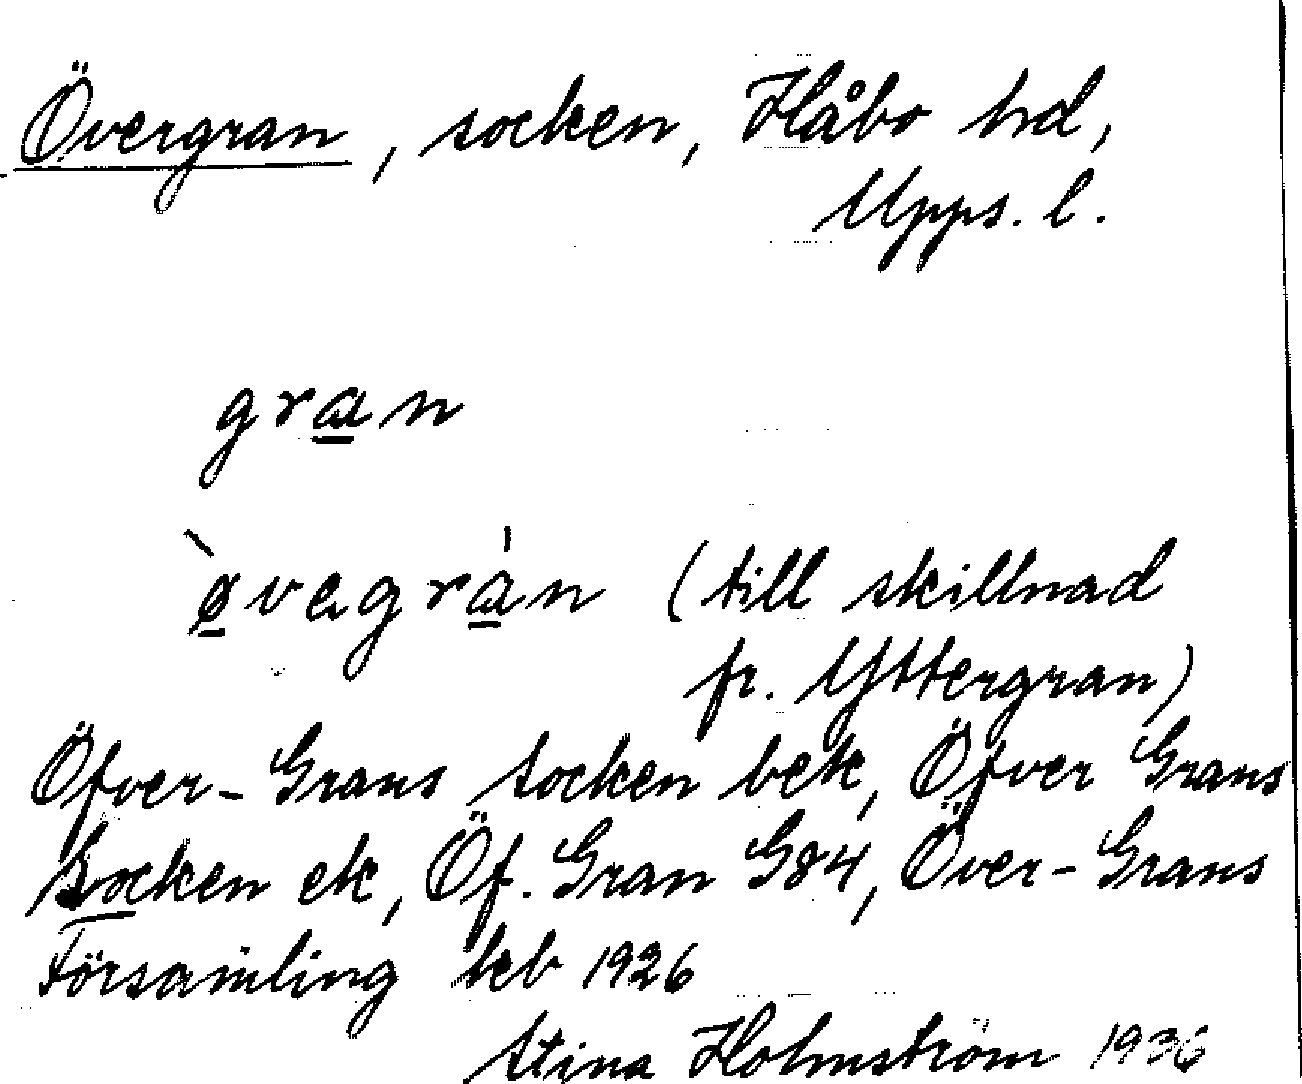 Övergran, socken, Håbo hd,
Upps. l.
gran
øvegrán (till skillnad
fr. Yttergran)
Öfver-Grans socken bek, Öfver Grans
Socken ek, Öf. Gran G84, Över-Grans
Församling kb 1926
Stina Holmström 1936